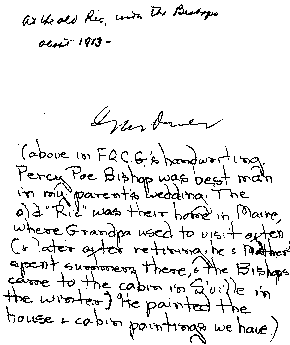 At the old Ric, with the Bishops
about 1913-
(above in FQCG's handwriting.
Percy Poe Bishop was best man
in my parent's wedding. The
old "Ric" was their home in Maine,
where Grandpa used to visit often
(& later after retiring, he & Mother
spent summers there, & the Bishops
came to the cabin in Q'ville in
the winter.) He painted the
house & cabin paintings we have)